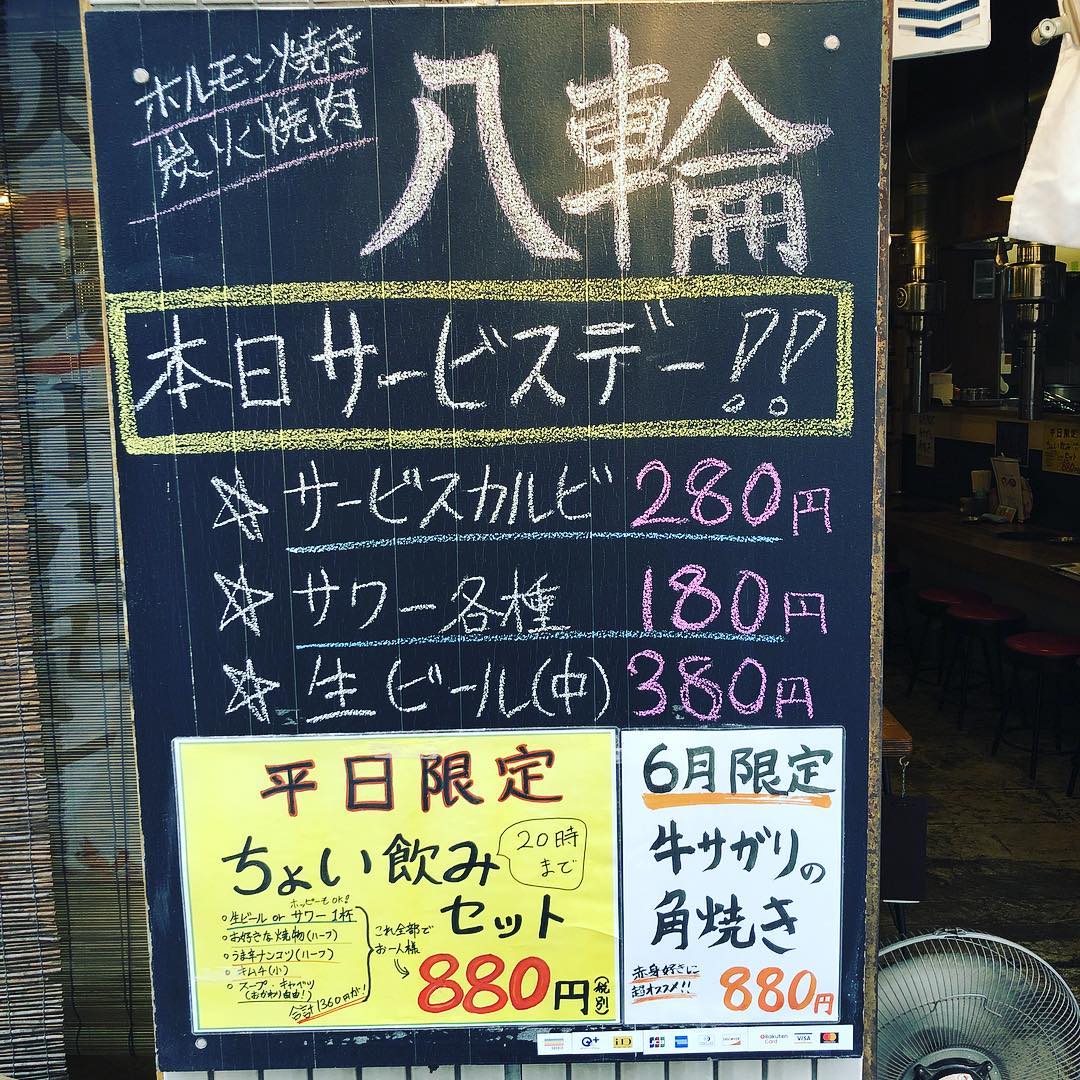 ホルモン焼き
炭火焼肉
八輪
本日サービスデー!!
☆サービスカルビ 280円
☆サワー各種 180円
☆生ビール(中) 380円
平日限定
ちょい飲み
20時
まで
セット
ホッピーもOK!
○生ビール or サワー 1杯
○お好きな焼物(ハーフ)
○うま辛ナンコツ(ハーフ)
○キムチ(小)
○スープ・キャベツ
(おかわり自由!)
合計1360円が!
これ全部で
お一人様
880円(税別)
6月限定
牛サガリの
角焼き
赤身好きに
超オススメ!!
880円
Q+
iD
JCB
DISCOVER
Rakuten
Card
VISA
平日限定
ちょい飲み
セット